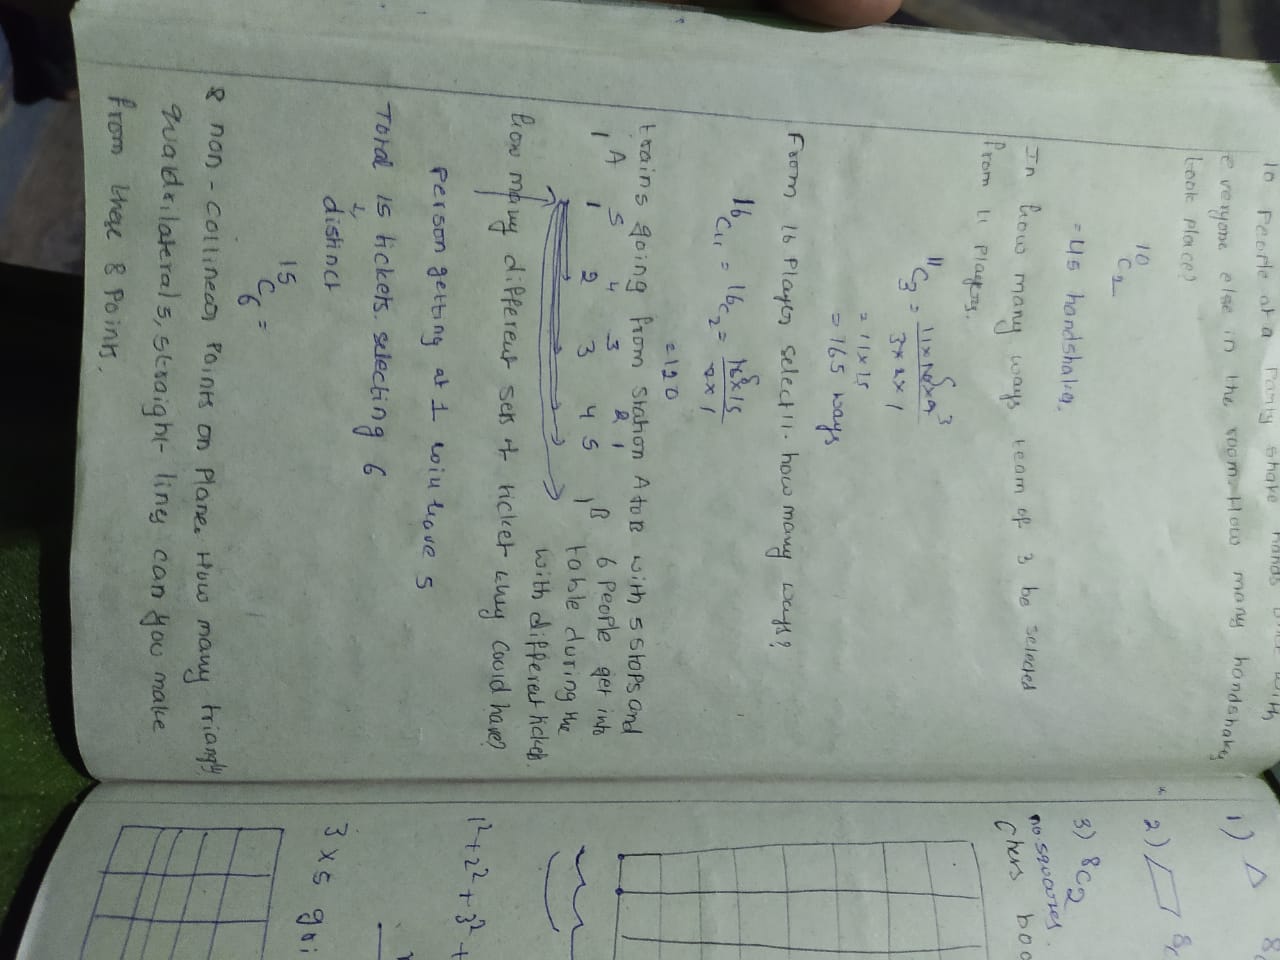 10 People at a Party shake hands once with
everyone else in the room. How many handshakes
took place?
10C2
= 45 handshakes.
In how many ways team of 3 be selected
from 11 players.
11C3 = 11x10x9 / 3x2x1
5 3
= 11x15
= 165 ways
From 16 Players select 11. how many ways?
16C11 = 16C2 = 16x15 / 2x1
8
= 120
trains going from station A to B with 5 stops and
A 5 4 3 2 1 B 6 people get into
1 1 2 3 4 5 1 table during the
with different tickets.
how many different sets of ticket they could have?
Person getting at 1 will have 5
Total 15 tickets. selecting 6
distinct
15C6 =
8 non-collinear Points on Plane. How many triangles,
quadrilaterals, straight lines can you make
from these 8 Points.
1) △ 8
2) 8c
3) 8C2
no squares.
Chess boa
1²+2²+3²+
3 x 5 gri